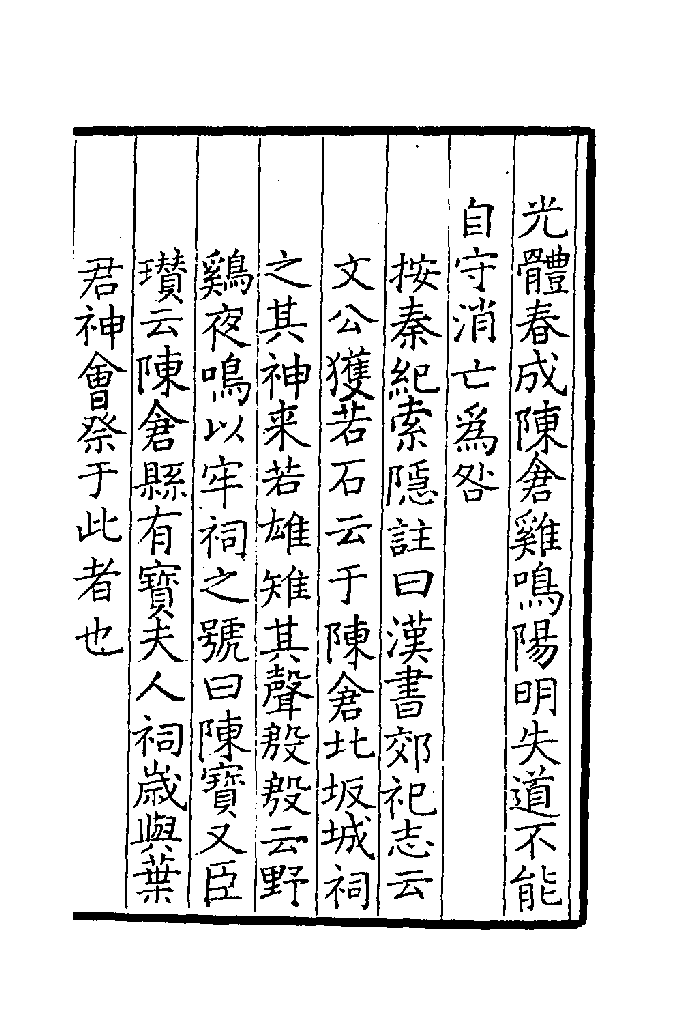 光體春成陳倉雞鳴陽明失道不能
自守消亡爲咎
按秦紀索隱註曰漢書郊祀志云
文公獲若石云于陳倉北坂城祠
之其神来若雄雉其聲殷殷云野
鷄夜鳴以牢祠之號曰陳寳又臣
瓉云陳倉縣有寳夫人祠歳與葉
君神會祭于此者也